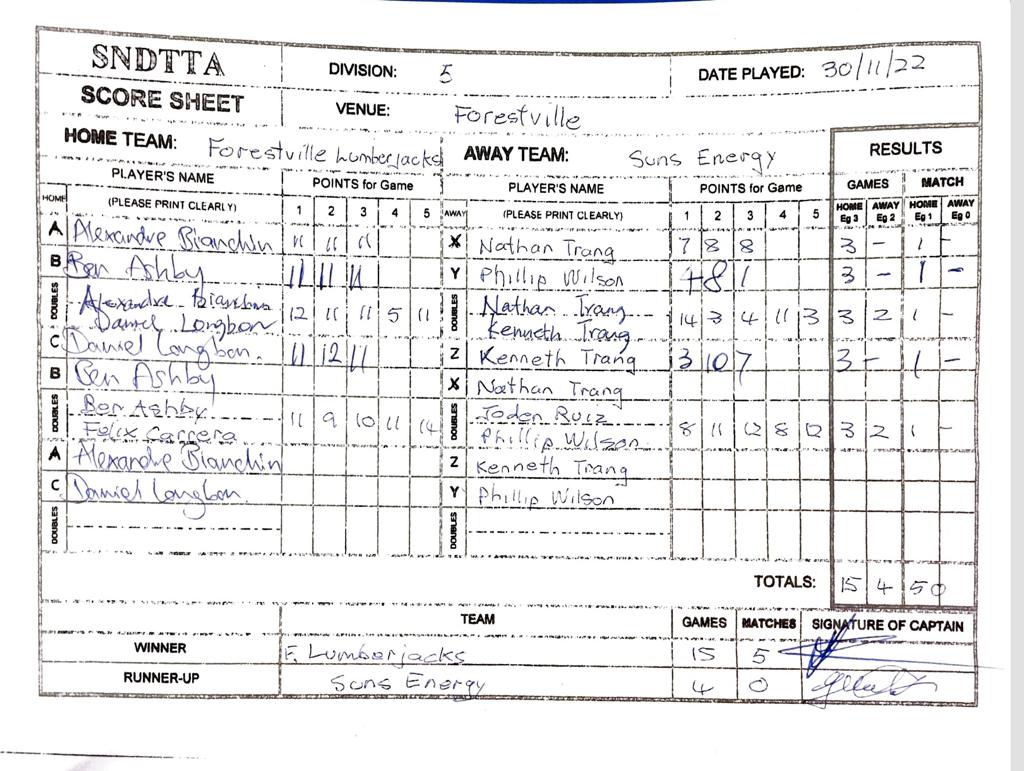 SNDTTA DIVISION: 5 DATE PLAYED: 30/11/22
SCORE SHEET VENUE: Forestville
HOME TEAM: Forestville Lumberjacks AWAY TEAM: Suns Energy RESULTS
PLAYER'S NAME POINTS for Game PLAYER'S NAME POINTS for Game GAMES MATCH
HOME (PLEASE PRINT CLEARLY) 1 2 3 4 5 AWAY (PLEASE PRINT CLEARLY) 1 2 3 4 5 HOME Eg 3 AWAY Eg 2 HOME Eg 1 AWAY Eg 0
A Alexandre Bianchin 11 11 11 X Nathan Trang 7 8 8 3 - 1 -
B Ben Ashby 11 11 11 Y Phillip Wilson 4 8 1 3 - 1 -
DOUBLES Alexandre Bianchin Nathan Trang
Daniel Longbon 12 11 11 5 11 DOUBLES Kenneth Trang 14 3 4 11 3 3 2 1 -
C Daniel Longbon. 11 12 11 Z Kenneth Trang 3 10 7 3 - 1 -
B Ben Ashby X Nathan Trang
DOUBLES Ben Ashby Joden Ruiz
Felix Carrera 11 9 10 11 14 DOUBLES Phillip Wilson 8 11 12 8 12 3 2 1 -
A Alexandre Bianchin Z Kenneth Trang
C Daniel Longbon. Y Phillip Wilson
DOUBLES DOUBLES
TOTALS: 15 4 5 0
TEAM GAMES MATCHES SIGNATURE OF CAPTAIN
WINNER F. Lumberjacks 15 5
RUNNER-UP Suns Energy 4 0